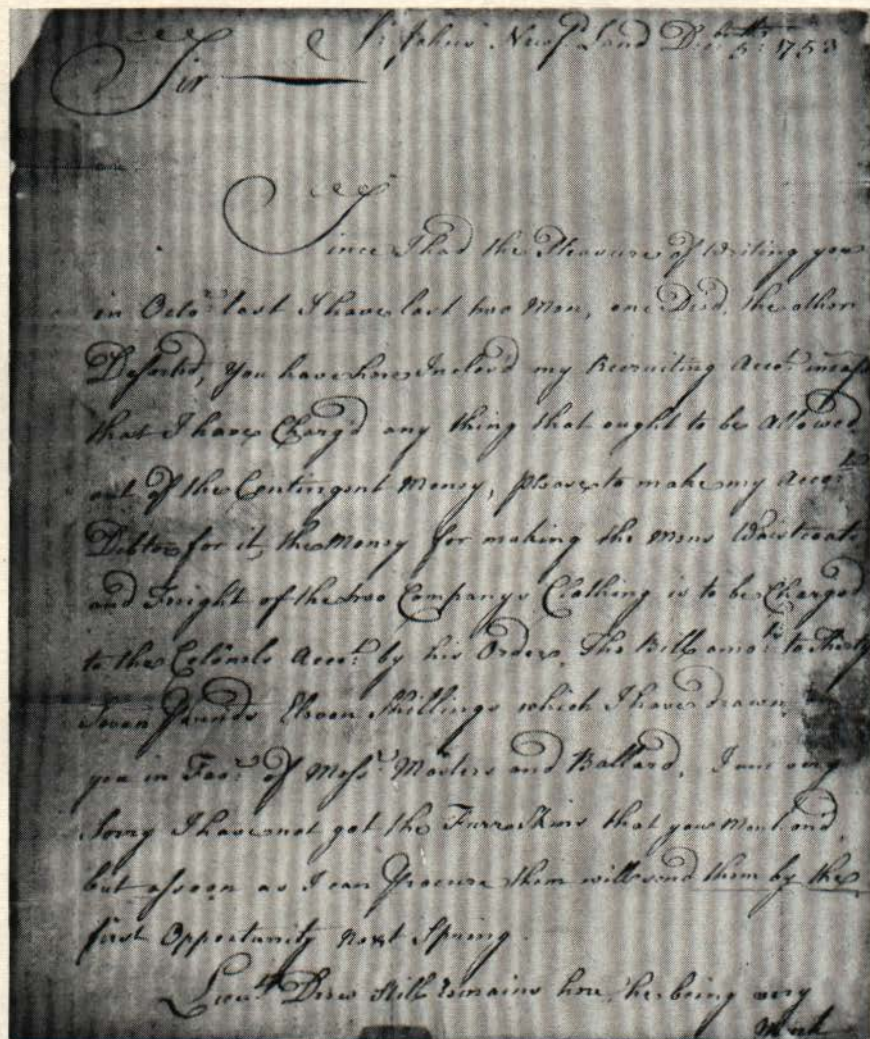 St. Johns Newfd. Land Decbr. 5th 1753
Sir
Since I had the Pleasure of Writing you
in Octor. last I have lost two Men, one Died, the other
Deserted, You have here Inclos'd my Recruiting Accot. incase
that I have Charg'd any thing that ought to be Allowed
out of the Contingent Money, please to make my Accot.
Debtor for it, the Money for making the Mens Waistcoats
and Freight of the two Companys Clothing is to be Charged
to the Colonels Accot. by his Order, The Bill amots. to Thirty
Seven Pounds Eleven Shillings which I have drawn
you in Favr. of Messrs. Masters and Ballard, I am very
Sorry I have not got the Furr Skins that you Mentiond,
but assoon as I can Procure them will send them by the
first Opportunity next Spring.
Lieut. Drew Still remains here, he being very
Much